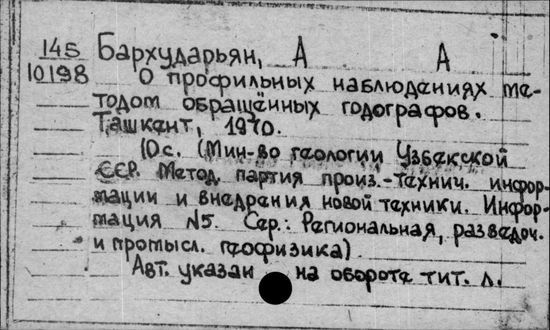 145 Бархударьян, А А
10198
О профильных наблюдениях ме-
тодом обращённых годографов.
Ташкент, 1970.
10 с. (Мин-во геологии Узбекской
ССР. Метод. партия произ.-технич. инфор-
мации и внедрения новой техники. Инфор-
мация №5. Сер.: Региональная, разведоч.
и промысл. геофизика)
Авт. указан на обороте тит. л.